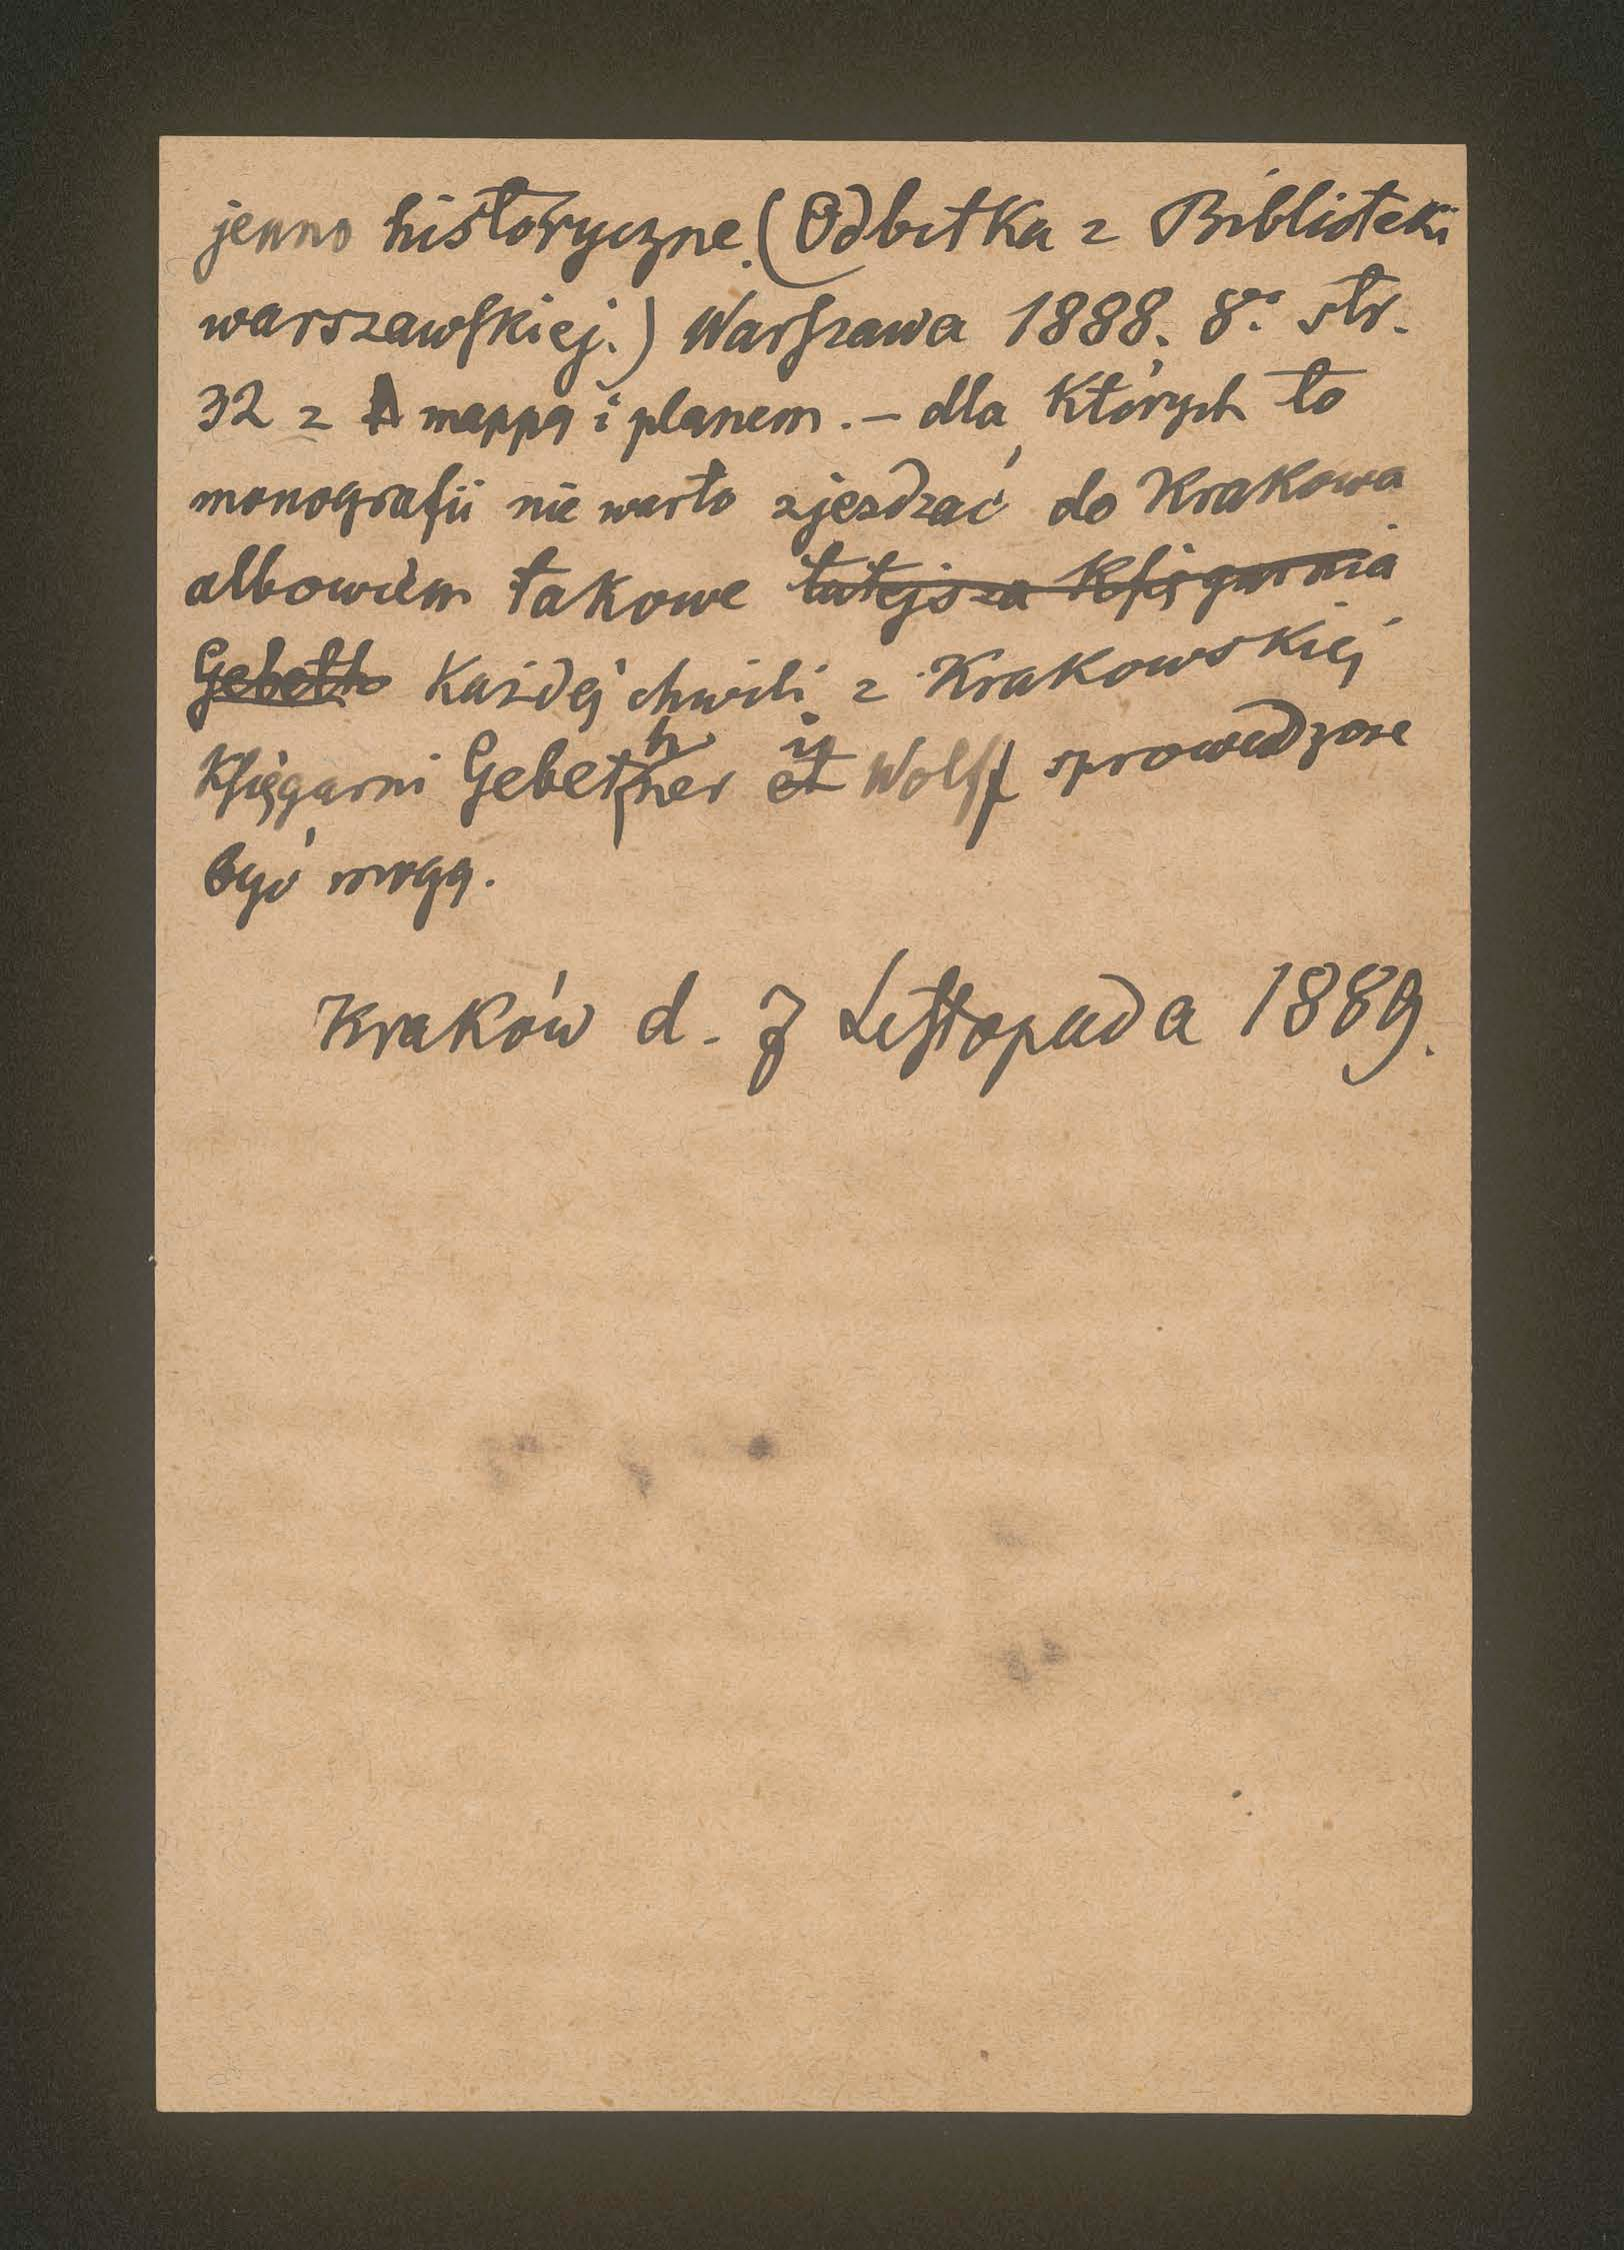 jenno historyczne. (Odbitka z Biblioteki
warszawskiej.) Warszawa 1888. 8º. str.
32 z mappą i planem. – dla których to
monografii nie warto zjeżdzać do Krakowa
albowiem takowe tutejsza Księgarnia
Gebeth każdej chwili z Krakowskiej
Księgarni Gebethner et i Wolff sprowadzone
być mogą.
Kraków d. 7 Listopada 1889.